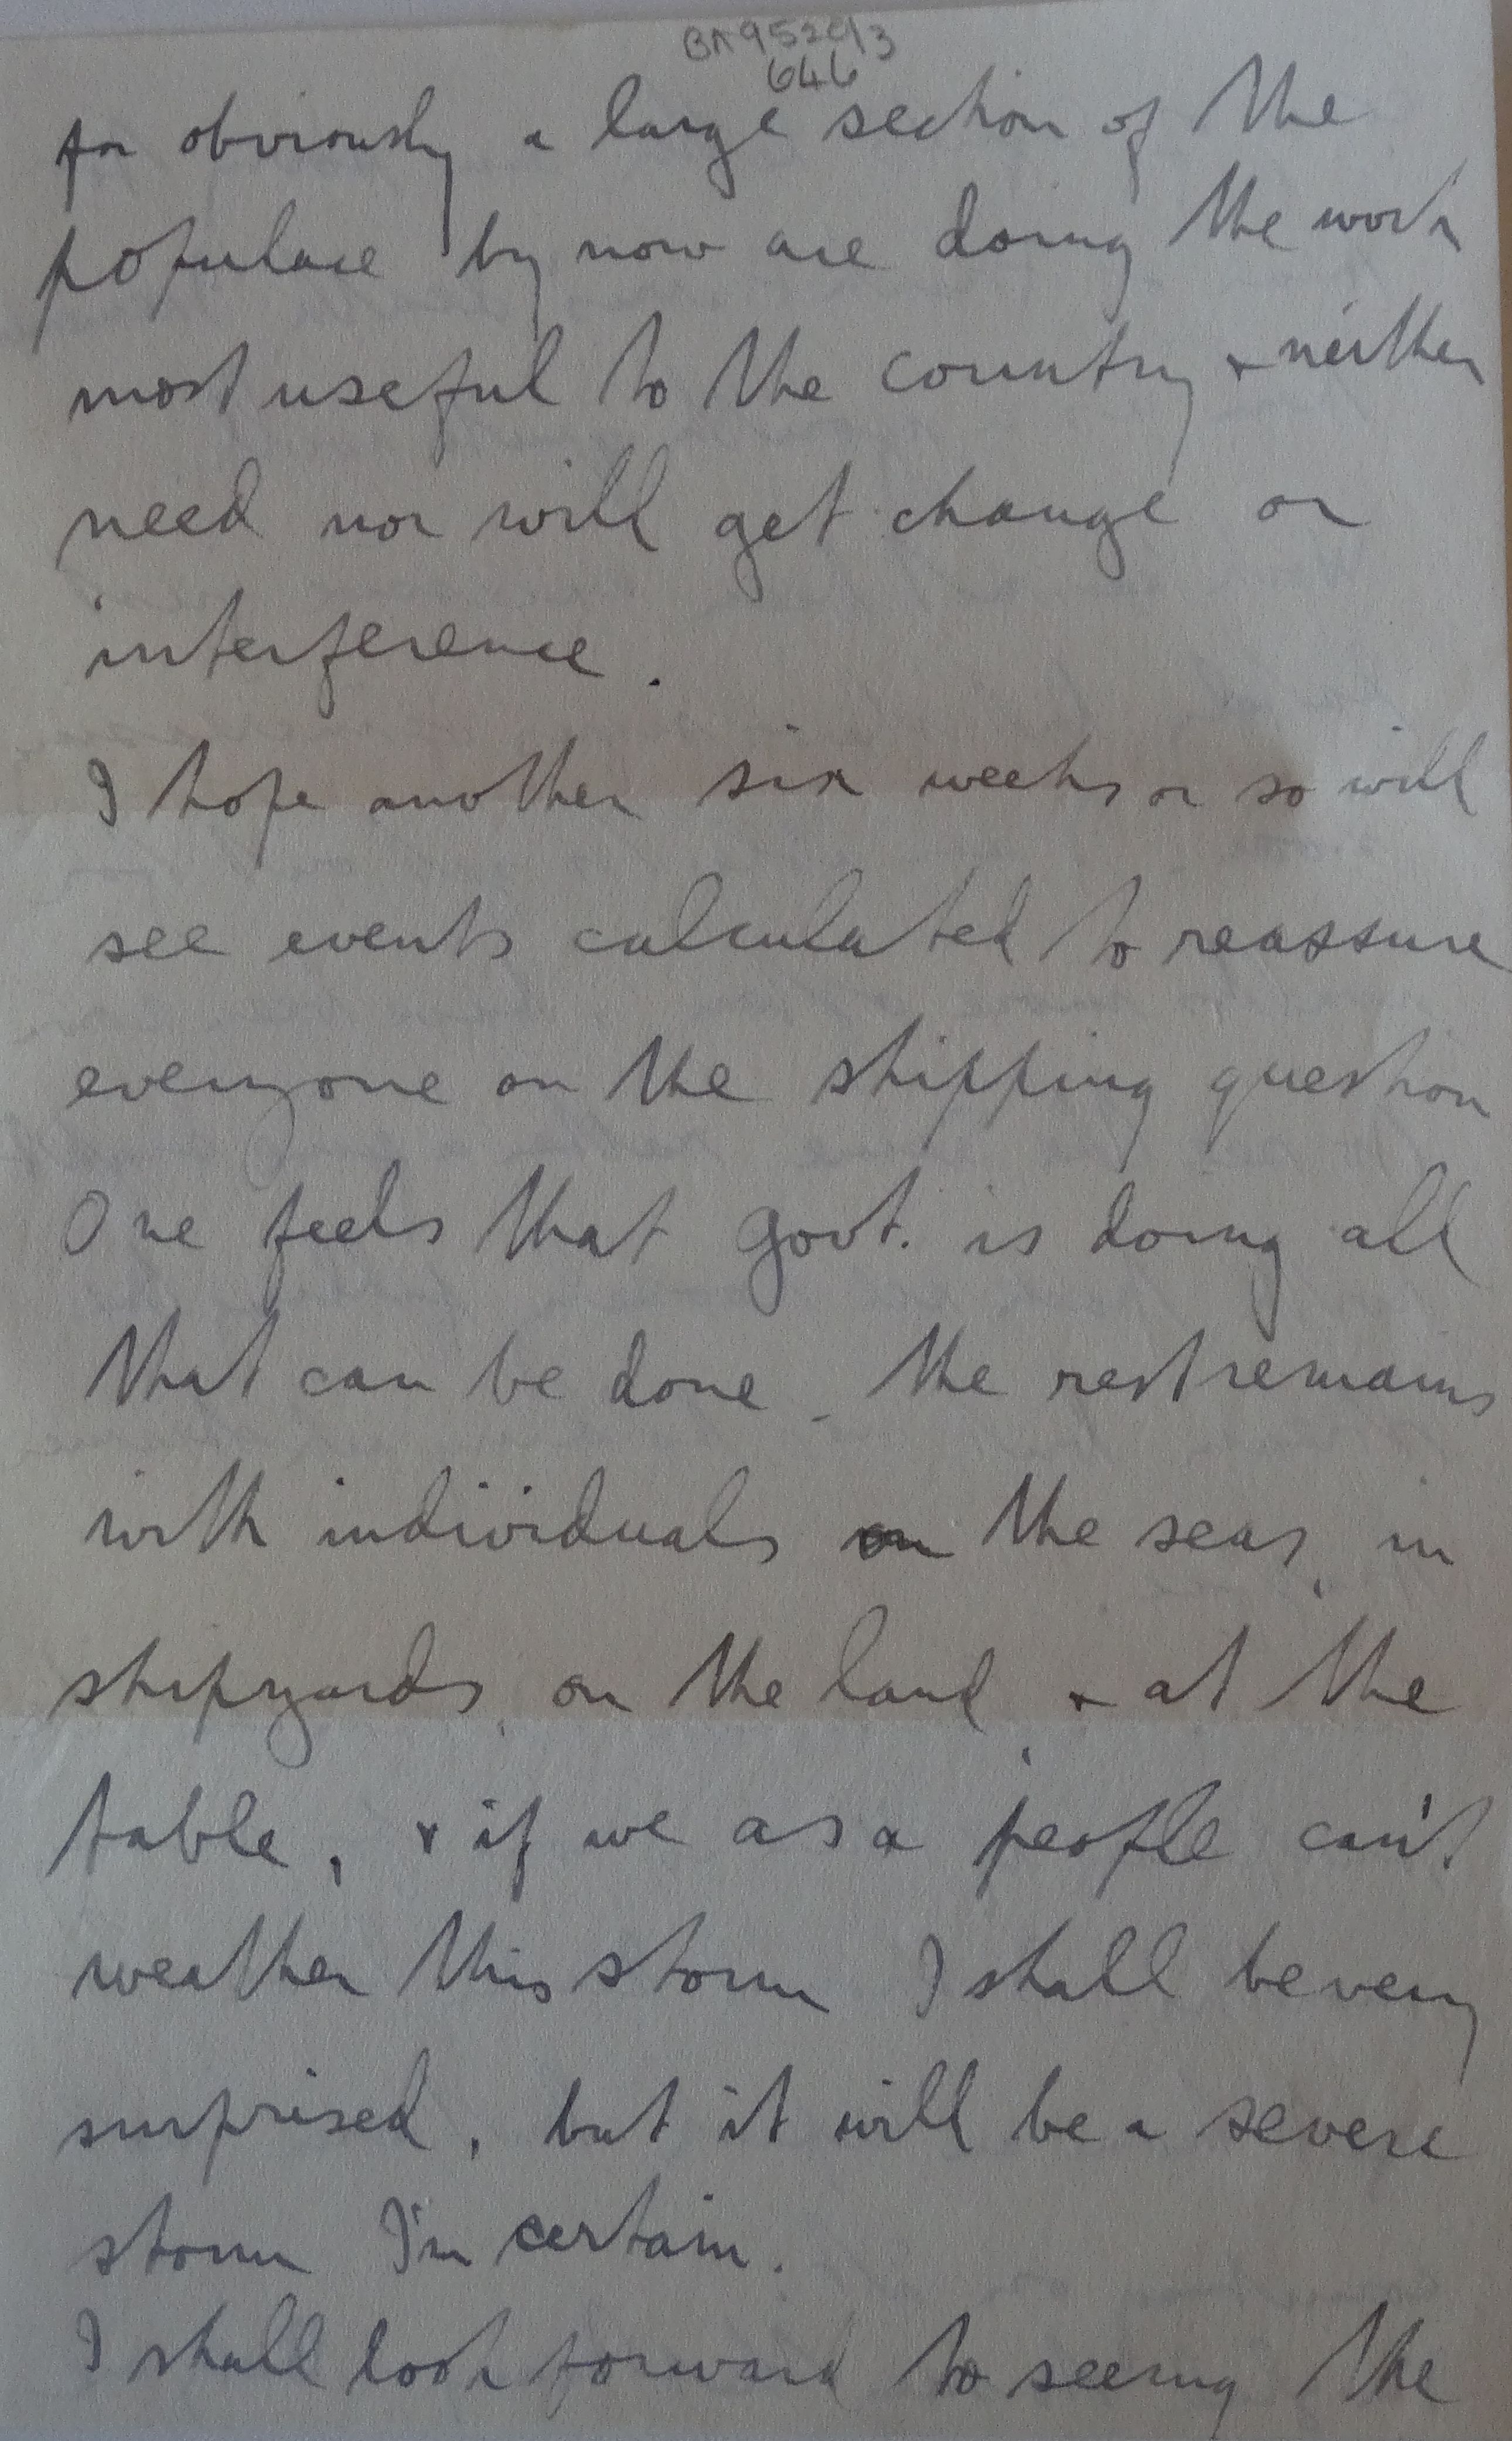 BA9520/3
646
for obviously a large section of the
populace by now are doing the work
most useful to the country & neither
need nor will get change or
interference.
I hope another six weeks or so will
see events calculated to reassure
everyone on the shipping question
One feels that govt. is doing all
that can be done. The rest remains
with individuals on the seas, in
shipyards, on the land, & at the
table, & if we as a people can't
weather this storm I shall be very
surprised, but it will be a severe
storm I'm certain.
I shall look forward to seeing the